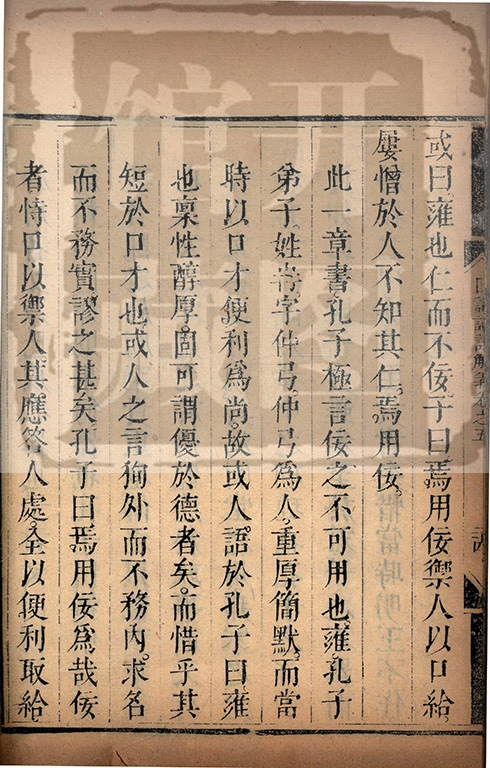 或曰雍也仁而不佞子曰焉用佞禦人以口給
屢憎於人不知其仁焉用佞
此一章書孔子極言佞之不可用也雍孔子
弟子姓冉字仲弓仲弓爲人重厚簡默而當
時以口才便利爲尚故或人語於孔子曰雍
也禀性醇厚固可謂優於德者矣而惜乎其
短於口才也或人之言狥外而不務內求名
而不務實謬之甚矣孔子曰焉用佞爲哉佞
者恃口以禦人其應答人處全以便利取給